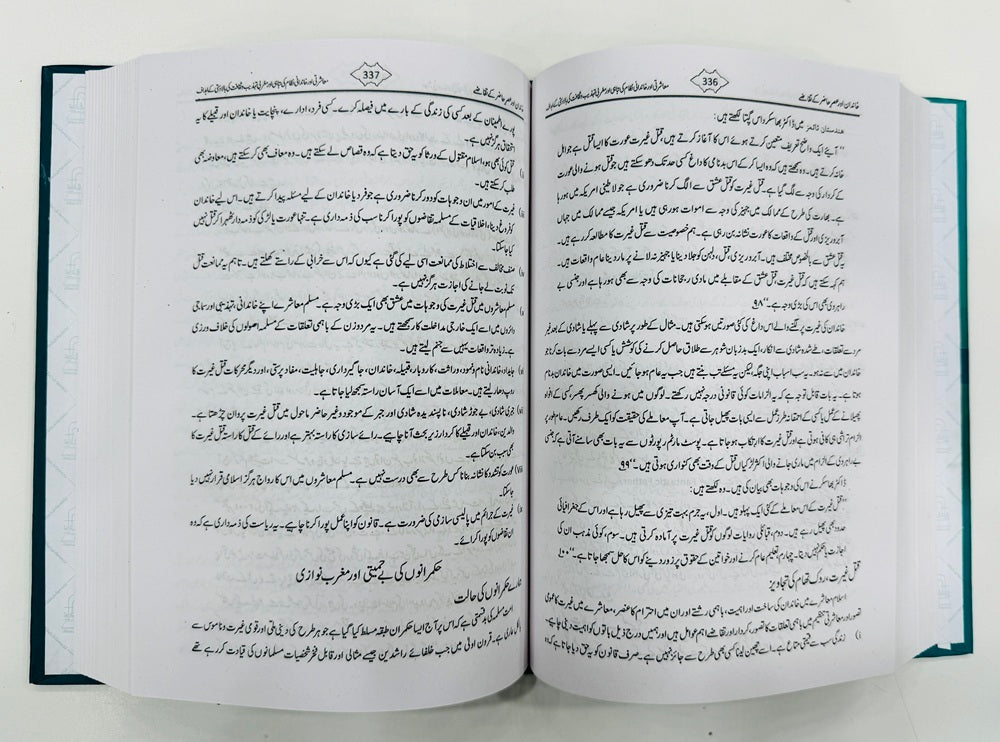 خاندان اور عصر حاضر کے تقاضے
336
معاشرتی اور خاندانی نظام کی تباہی اور مغربی تہذیب و ثقافت کی بالادستی کے اہداف
ہندستان ٹائمز میں ڈاکٹر بھاسکر داس گپتا لکھتے ہیں:
’’آیئے ایک واضح تعریف متعین کرتے ہوئے اس کا آغاز کرتے ہیں، قتل غیرت عورت کا ایسا قتل ہے جو اہل
خانہ کرتے ہیں۔ وہ سمجھتے ہیں کہ وہ ایسا کر کے اس بدنامی کا داغ کسی حد تک دھو سکتے ہیں جو قتل ہونے والی عورت
کے کردار کی وجہ سے لگ گیا ہے۔ قتل غیرت کو قتل عشق سے الگ کرنا ضروری ہے جو لاطینی امریکہ میں ہو رہا
ہے۔ بھارت کی طرح کے ممالک میں جہیز کی وجہ سے اموات ہو رہی ہیں یا امریکہ جیسے ممالک میں جہاں
آبرو ریزی اور قتل کے واقعات کا عورت نشانہ بن رہی ہے۔ ہم خصوصیت سے قتل غیرت کا مطالعہ کر رہے ہیں۔
یہ قتل عشق سے بالخصوص مختلف ہیں۔ آبرو ریزی، قتل، دلہن کو جلا دینا یا جہیز نہ لانے پر مار دینا عام واقعات ہیں۔
ہم کہہ سکتے ہیں کہ قتل غیرت، قتل عشق کے مقابلے میں مادی رجحانات کی وجہ سے بھی ہو رہا ہے اور جنسی بے
راہ روی بھی اس کی بڑی وجہ ہے۔‘‘ ۹۸
خاندان کی غیرت پر لگنے والے اس داغ کی کئی صورتیں ہو سکتی ہیں۔ مثال کے طور پر شادی سے پہلے یا شادی کے بعد غیر
مرد سے تعلقات، طے شدہ شادی سے انکار، ایک بدزبان شوہر سے طلاق حاصل کرنے کی کوشش یا کسی ایسے مرد سے بات کرنا جو
خاندان میں سے نہ ہو۔ یہ سب اسباب اپنی جگہ، لیکن یہ مسئلے تب بنتے ہیں جب یہ عام ہو جائیں۔ ایسی صورت میں خاندان بدنام
ہوتا ہے۔ یہ بات قابل توجہ ہے کہ یہ الزامات کوئی قانونی درجہ نہیں رکھتے۔ لوگوں میں ہونے والی کھسر پھسر، کسی کے افواہ
پھیلانے کے عمل یا کسی کے احمقانہ طرز عمل سے ایسی بات پھیل جاتی ہے۔ آپ معاملے کی حقیقت کو ایک طرف رکھیں۔ عام طور پر
الزام تراشی ہی کافی ہوتی ہے اور قتل غیرت کا ارتکاب ہو جاتا ہے۔ پوسٹ مارٹم رپورٹوں سے یہ بات بھی سامنے آئی ہے کہ جنسی
بے راہ روی کے الزام میں ماری جانے والی اکثر لڑکیاں قتل کے وقت بھی کنواری ہوتی ہیں۔‘‘ ۹۹
ڈاکٹر بھاسکر نے اس کی وجوہات بھی بیان کی ہیں۔ وہ لکھتے ہیں:
’’قتل غیرت کے اس معاملے کے کئی ایک پہلو ہیں۔ اول، یہ جرم بہت تیزی سے پھیل رہا ہے اور اس کے جغرافیائی
حدود بھی پھیل رہے ہیں۔ دوم، قبائلی روایات لوگوں کو قتل غیرت پر آمادہ کرتی ہیں۔ سوم، کوئی مذہب ان کی
اجازت یا حکم نہیں دیتا۔ چہارم تعلیم عام کرنے اور خواتین کے حقوق پر زور دینے کو اس کا حل سمجھا جاتا ہے۔‘‘ ۱۰۰
قتل غیرت، روک تھام کی تجاویز
اسلام معاشرے میں خاندان کی ساخت اور اہمیت، باہمی رشتے اور ان میں احترام کا عنصر، معاشرے میں غیرت کا عمومی
تصور اور معاشرتی تنظیم میں باہمی تعلقات کا تصور، کردار اور تقاضے اہم عوامل ہیں اور ہمیں درج ذیل باتوں کو اہمیت دینی چاہیے۔
i) زندگی سب سے قیمتی متاع ہے۔ اسے چھین لینا کسی بھی طرح سے جائز نہیں ہے۔ صرف قانون کو یہ حق دیا جاتا ہے کہ وہ
337
معاشرتی اور خاندانی نظام کی تباہی اور مغربی تہذیب و ثقافت کی بالادستی کے اہداف
پورے اطمینان کے بعد کسی کی زندگی کے بارے میں فیصلہ کرے۔ کسی فرد، ادارے، پنچایت یا خاندان اور قبیلے کا یہ
استحقاق ہرگز نہیں ہے۔
قتل کوئی بھی ہو، اسلام مقتول کے ورثا کو یہ حق دیتا ہے کہ وہ قصاص لے سکتے ہیں۔ وہ معاف بھی کر سکتے ہیں، معاوضہ بھی
طلب کر سکتے ہیں۔
غیرت کے امور میں ان وجوہات کو دور کرنا ضروری ہے جو فرد یا خاندان کے لیے مسئلہ پیدا کرتے ہیں۔ اس لیے خاندان
کو فروغ دینا، اخلاقیات کے مسلمہ تقاضوں کو پورا کرنا سب کی ذمہ داری ہے۔ تنہا عورت یا لڑکی کو ذمہ دار ٹھہرا کر قتل نہیں
کیا جا سکتا۔
صنف مخالف سے اختلاط کی ممانعت اسی لیے کی گئی ہے کیوں کہ اس سے خرابی کے راستے کھلتے ہیں۔ تاہم یہ ممانعت قتل
تک نوبت لے جانے کی اجازت ہرگز نہیں ہے۔
مسلم معاشروں میں قتل غیرت کی وجوہات میں عشق بھی ایک بڑی وجہ ہے۔ مسلم معاشرے اپنے خاندانی، تہذیبی اور سماجی
دائروں میں اسے ایک خارجی مداخلت کار سمجھتے ہیں۔ یہ مرد و زن کے باہمی تعلقات کے مسلمہ اصولوں کی خلاف ورزی
ہے۔ زیادہ تر واقعات یہیں سے جنم لیتے ہیں۔
جاہلیہ، خاندانی نام و نمود، وراثت، کاروبار، قبیلہ، خاندان، جاگیرداری، جاہلیت، مفاد پرستی، اور دیگر محرکات قتل غیرت کا
روپ دھار لیتے ہیں۔ معاملات میں اسے ایک آسان راستہ سمجھ لیا جاتا ہے۔
جبری شادی، بے جوڑ شادی، ناپسندیدہ شادی اور جبر کے موجود و غیر حاضر ماحول میں قتل غیرت پروان چڑھتا ہے۔
والدین، خاندان اور قبیلے کا کردار زیر بحث آنا چاہیے۔ رائے سازی کا راستہ بہتر ہے اور رائے کے قتل کا راستہ قتل غیرت کا
بھی سبب بن سکتا ہے۔
عورت کو تشدد کا نشانہ بنانا کس طرح سے بھی درست نہیں ہے۔ مسلم معاشروں میں اس کا رواج ہرگز اسلامی قرار نہیں دیا
جا سکتا۔
غیرت کے جرائم میں پالیسی سازی کی ضرورت ہے۔ قانون کو اپنا عمل پورا کرنا چاہیے۔ یہ ریاست کی ذمہ داری ہے کہ وہ
ان تقاضوں کو پورا کرائے۔
حکمرانوں کی بے حمیتی اور مغرب نوازی
ہمارے حکمرانوں کی حالت
امت مسلمہ کی بدقسمتی ہے کہ اس پر آج ایسا حکمران طبقہ مسلط کیا گیا ہے جو ہر طرح کی دینی ملی اور قومی غیرت و ناموس سے
بالکل عاری ہے۔ قرون اولیٰ میں جب خلفائے راشدین جیسے مثالی اور قابل فخر شخصیات مسلمانوں کی قیادت کر رہے تھے